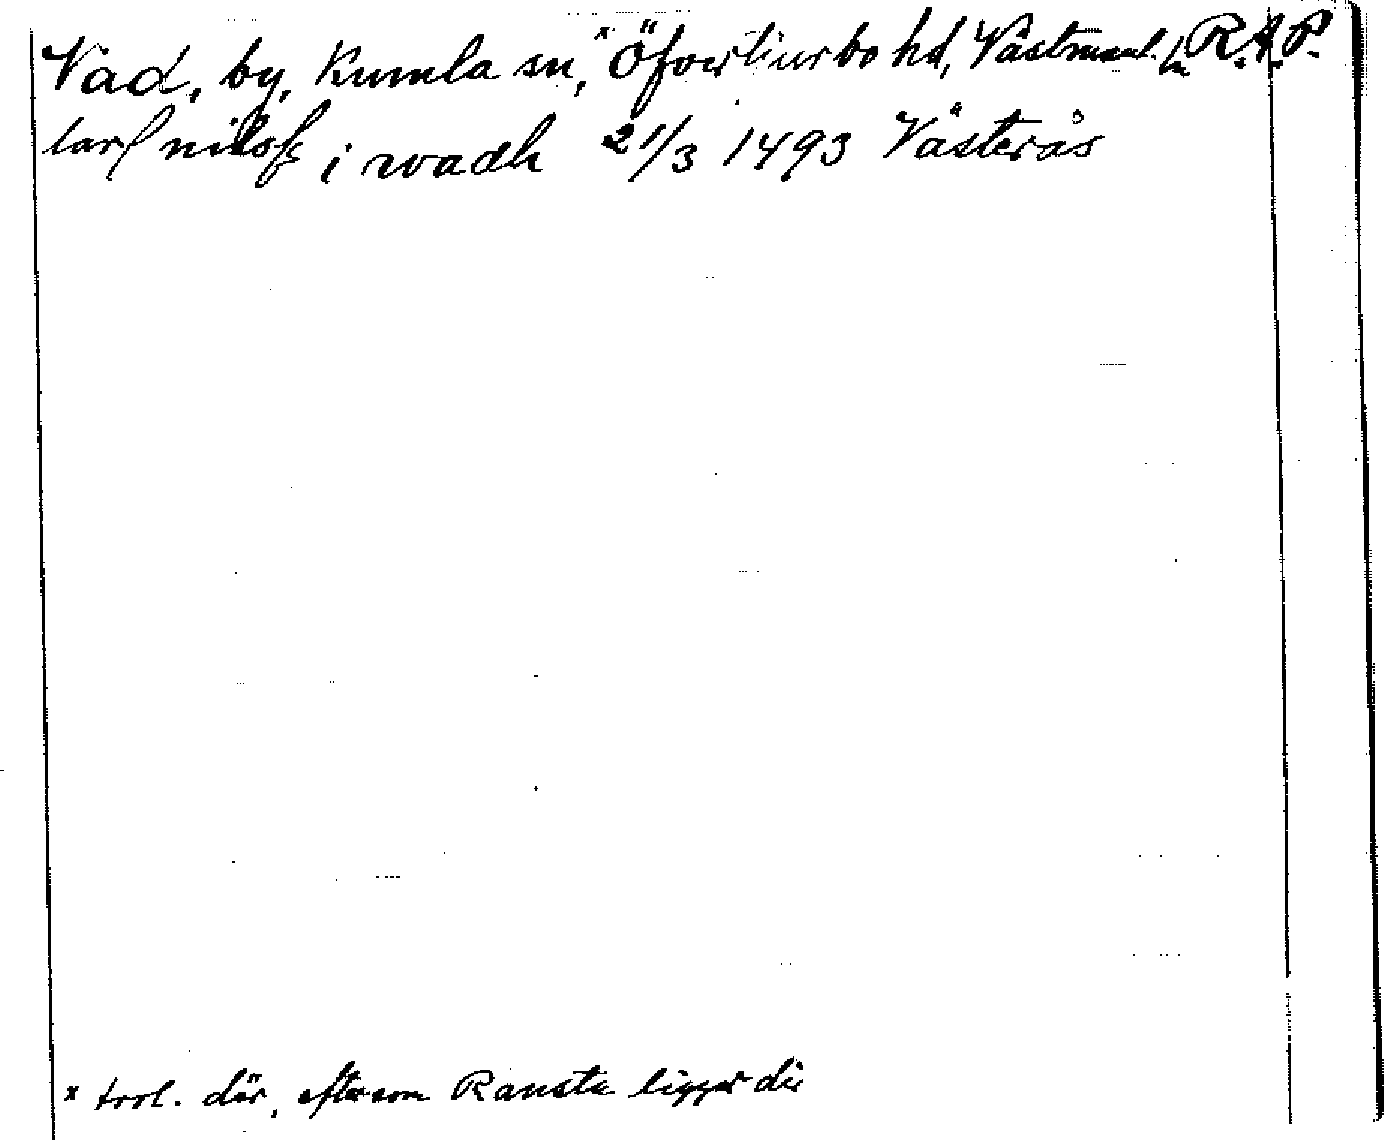 Vad, by, Kumla sn,ˣ Öfvertiurbo hd, Västmanl. l. R.A.P.
lar nilss i wadh 21/3 1493 Västerås
x trol. där, eftersom Ransta ligger där